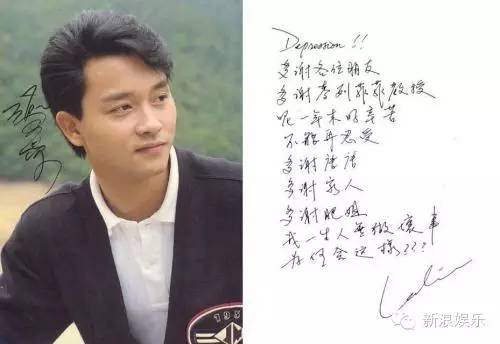 張國榮
Depression!!
多謝各位朋友
多謝麥列菲菲教授
呢一年來好辛苦
不能再忍受
多謝唐唐
多謝家人
多謝肥姐
我一生人無做壞事
為何會這樣???
Leslie
新浪娱乐